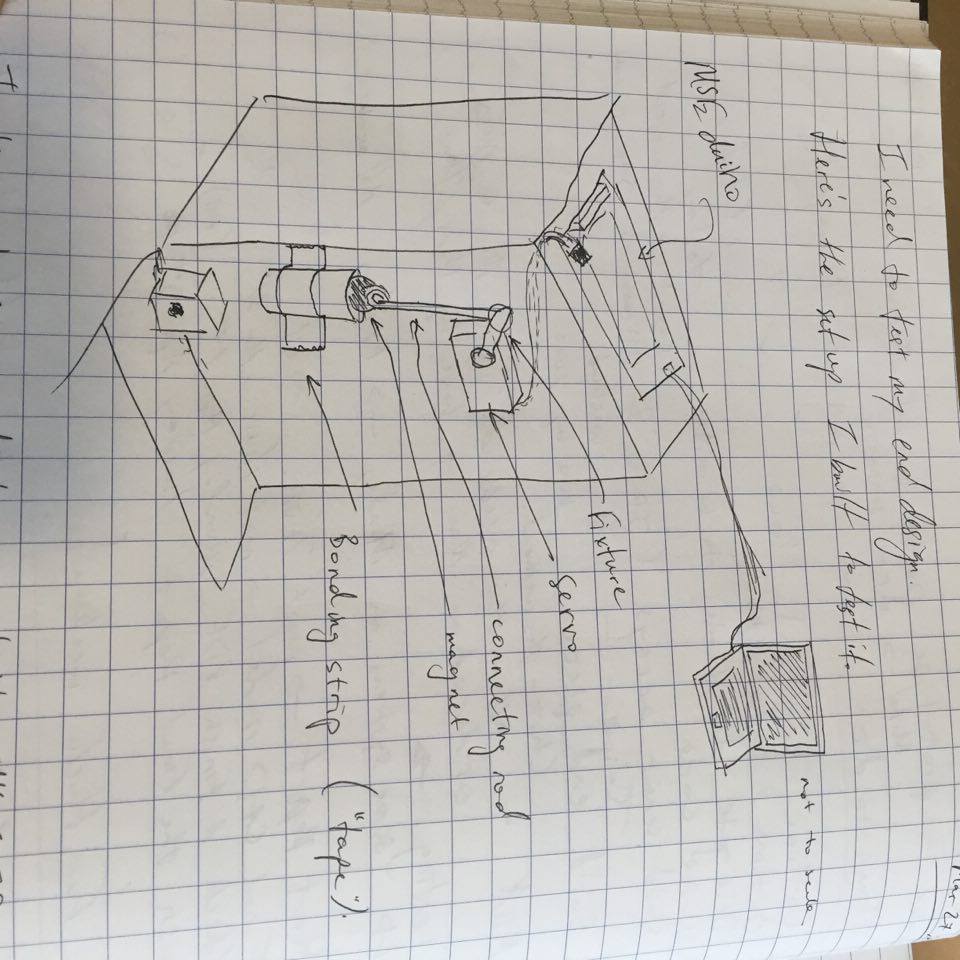 Mar 27
I need to test my end design.
Here's the set up I built to test it.
not to scale
duino
fixture
servo
connecting rod
magnet
Bonding strip ("tape").